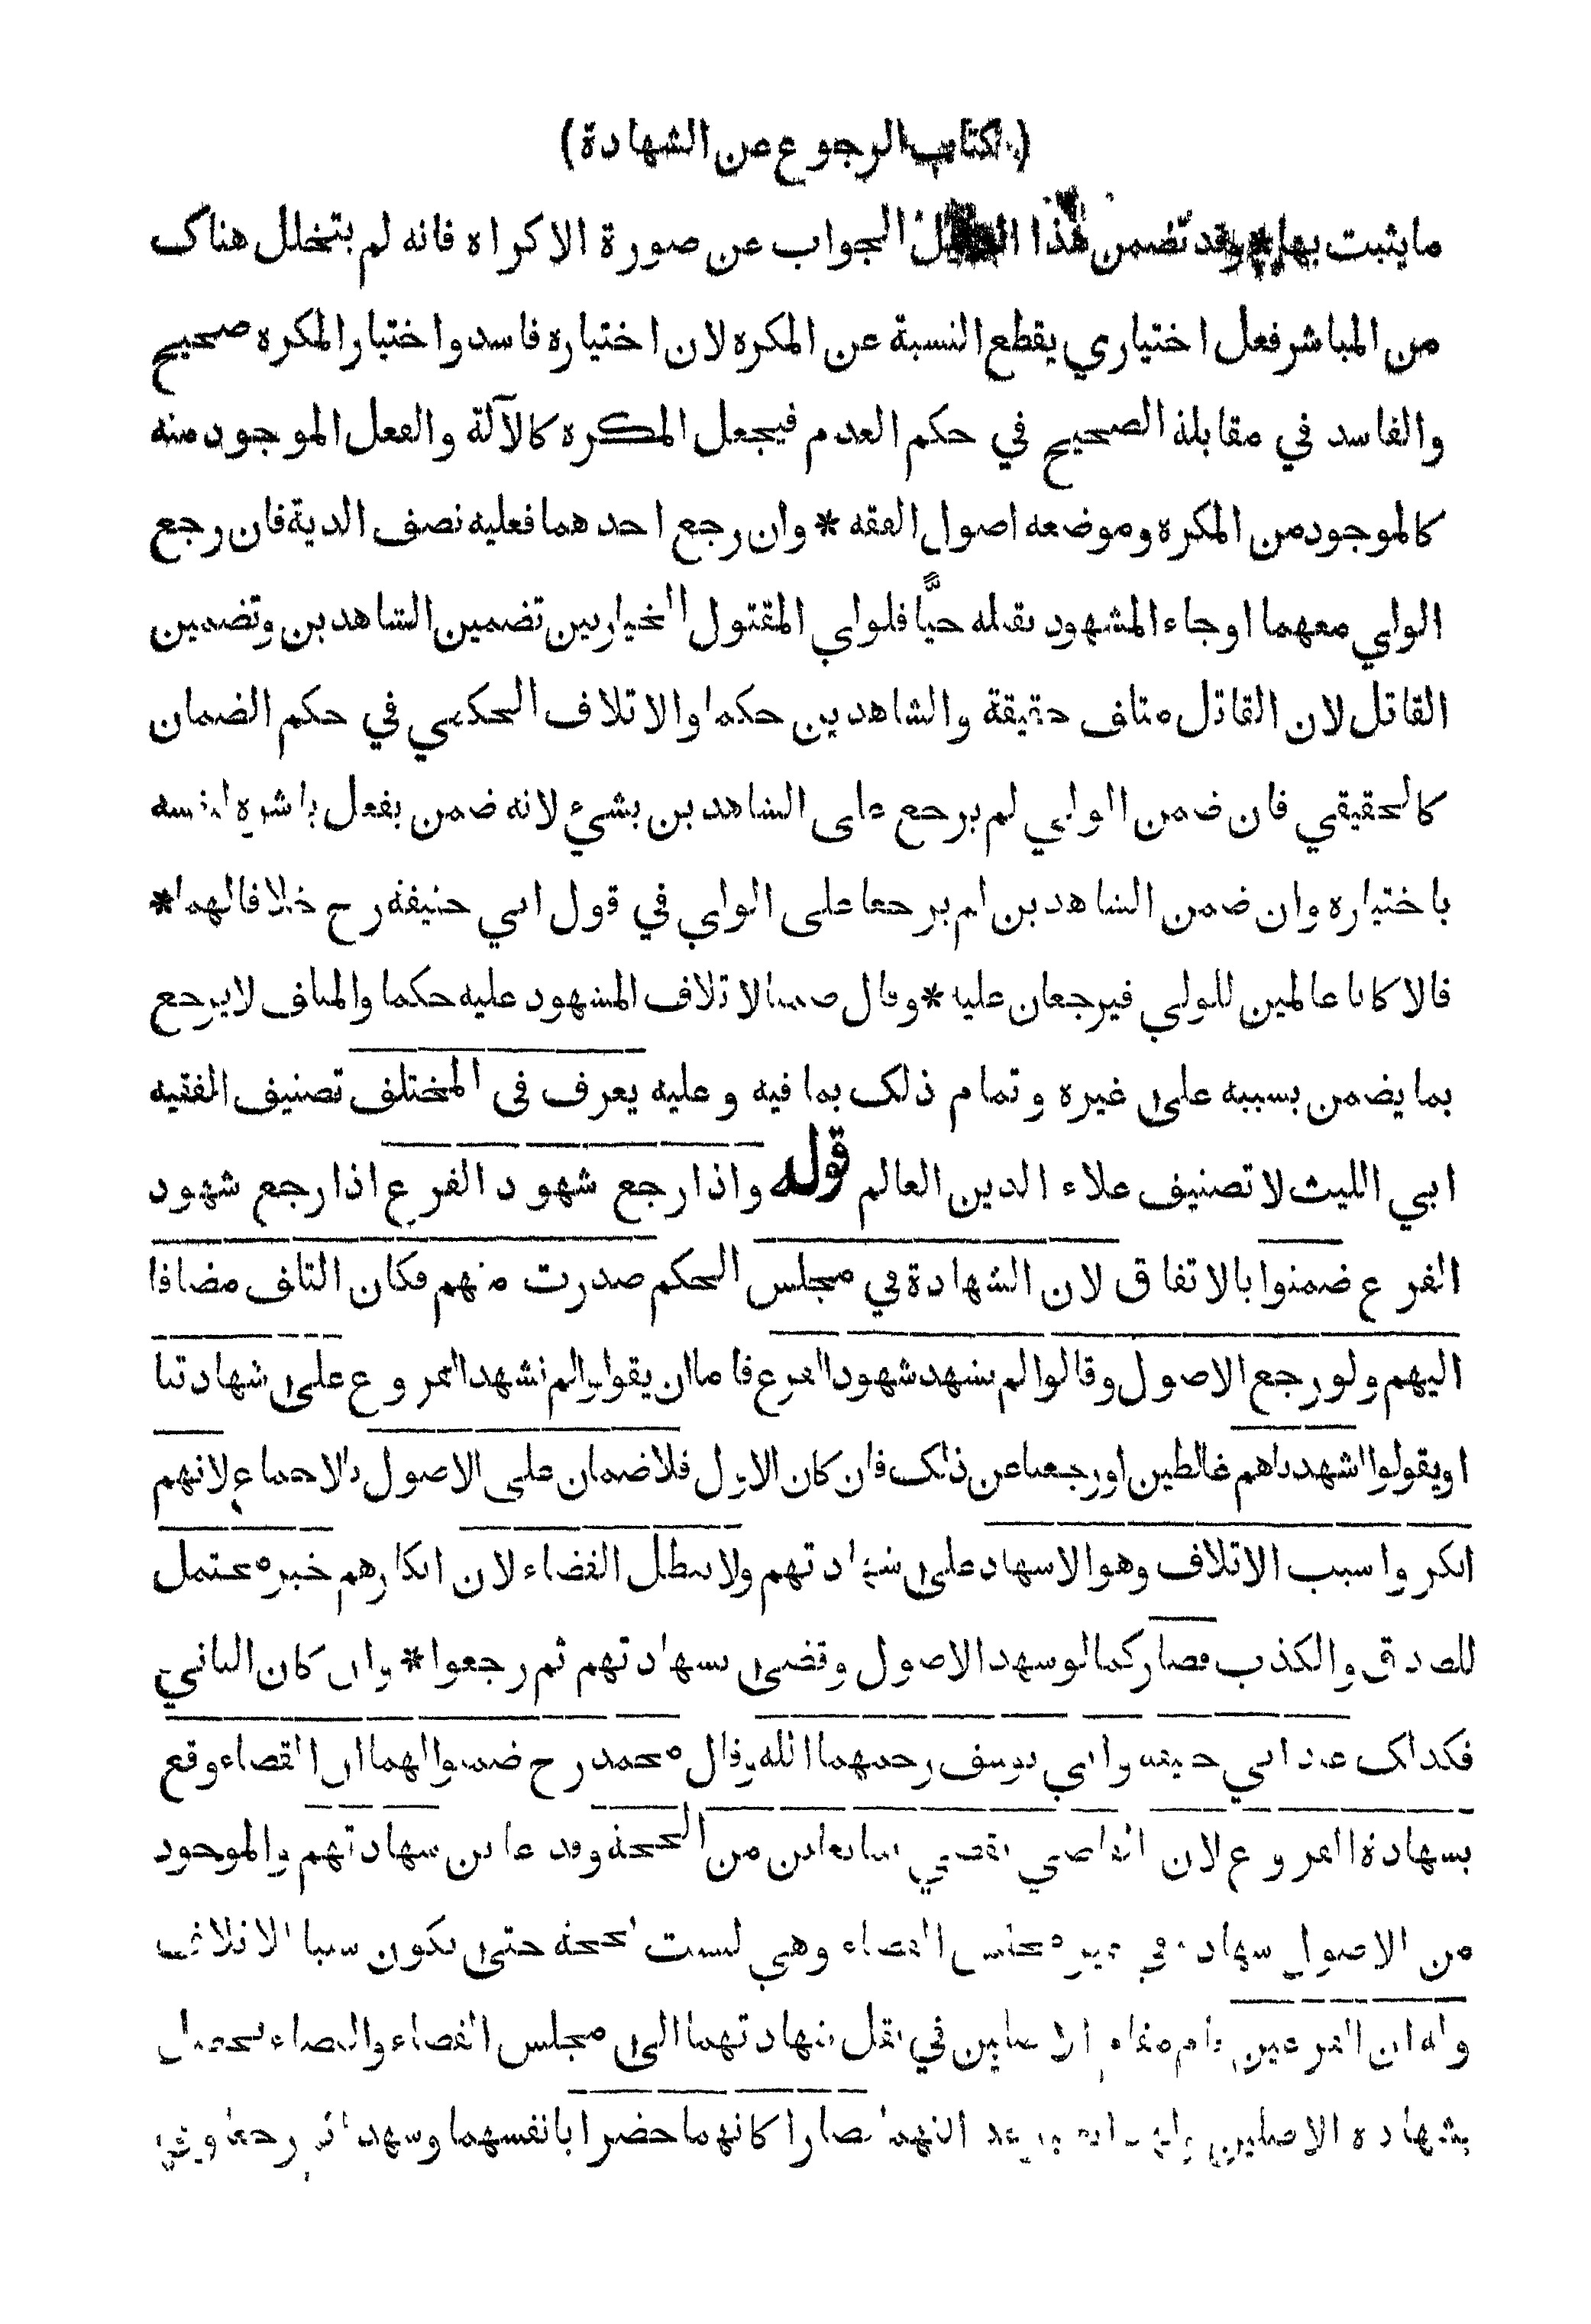 (كتاب الرجوع عن الشهادة)
مايثبت بها * وقد تضمن هذا الجواب عن صورة الاكراه فانه لم يتخلل هناك
من المباشر فعل اختياري يقطع النسبة عن المكره لان اختياره فاسد واختيار المكره صحيح
والفاسد في مقابلة الصحيح في حكم العدم فيجعل المكره كالآلة والفعل الموجود منه
كالموجود من المكره وموضعه اصول الفقه * وان رجع احدهما فعليه نصف الدية فان رجع
الولي معهما او جاء المشهود بقتله حيًّا فلولي المقتول الخيار بين تضمين الشاهدين وتضمين
القاتل لان القاتل متلف حقيقة والشاهدين حكما والاتلاف الحكمي في حكم الضمان
كالحقيقي فان ضمن الولي لم يرجع على الشاهدين بشيء لانه ضمن بفعل باشره لنفسه
باختياره وان ضمن الشاهدين لم يرجعا على الولي في قول ابي حنيفة رح خلافا لهما *
قالا كانا عاملين للولي فيرجعان عليه * وقال ضمنا لاتلاف المشهود عليه حكما والمتلف لايرجع
بما يضمن بسببه على غيره وتمام ذلك بما فيه وعليه يعرف في المختلف تصنيف الفقيه
ابي الليث لا تصنيف علاء الدين العالم قوله واذا رجع شهود الفرع اذا رجع شهود
الفرع ضمنوا بالاتفاق لان الشهادة في مجلس الحكم صدرت منهم فكان التلف مضافا
اليهم ولو رجع الاصول وقالوا لم نشهد شهود الفرع فاما ان يقولوا لم نشهد الفروع على شهادتنا
او يقولوا اشهدناهم غالطين او رجعنا عن ذلك فان كان الاول فلا ضمان على الاصول بالاجماع لانهم
انكروا سبب الاتلاف وهو الاشهاد على شهادتهم ولا يبطل القضاء لان انكارهم خبر محتمل
للصدق والكذب فصار كما لو شهد الاصول وقضى بشهادتهم ثم رجعوا * وان كان الثاني
فكذلك عند ابي حنيفة وابي يوسف رحمهما الله وقال محمد رح ضمنوا لهما ان القضاء وقع
بشهادة الفروع لان القاضي يقضي بما يعاين من الحجة وقد عاين شهادتهم والموجود
من الاصول شهادة في غير مجلس القضاء وهي ليست بحجة حتى يكون سببا للاتلاف
وله ان الفرعين قاما مقام الاصلين في نقل شهادتهما الى مجلس القضاء والقضاء يحصل
بشهادة الاصلين صارا كانهما حضرا بانفسهما وشهدا ثم رجعا وفي